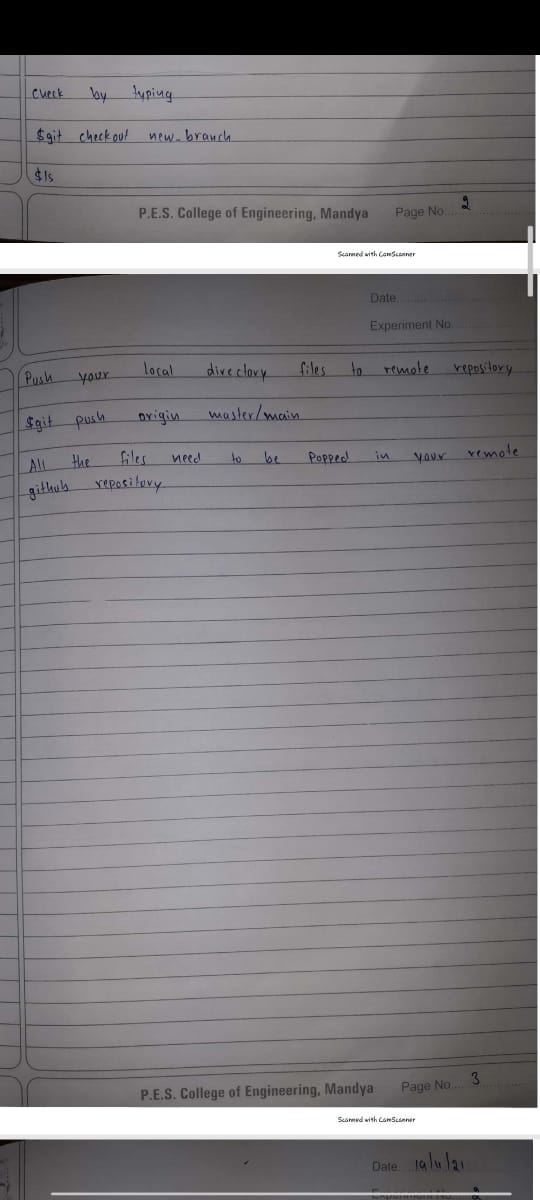 check by typing
$git checkout new-branch
$ls
P.E.S. College of Engineering, Mandya Page No. 2
Scanned with CamScanner
Date
Experiment No
Push your local directory files to remote repository
$git push origin master/main
All the files need to be Popped in your remote
github repository
P.E.S. College of Engineering, Mandya Page No. 3
Scanned with CamScanner
Date